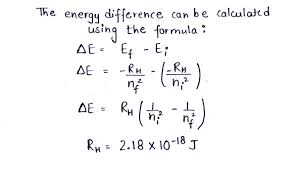 The energy difference can be calculated
using the formula:
ΔE = E_f - E_i
ΔE = -R_H/n_f² - (-R_H/n_i²)
ΔE = R_H (1/n_i² - 1/n_f²)
R_H = 2.18 × 10⁻¹⁸ J